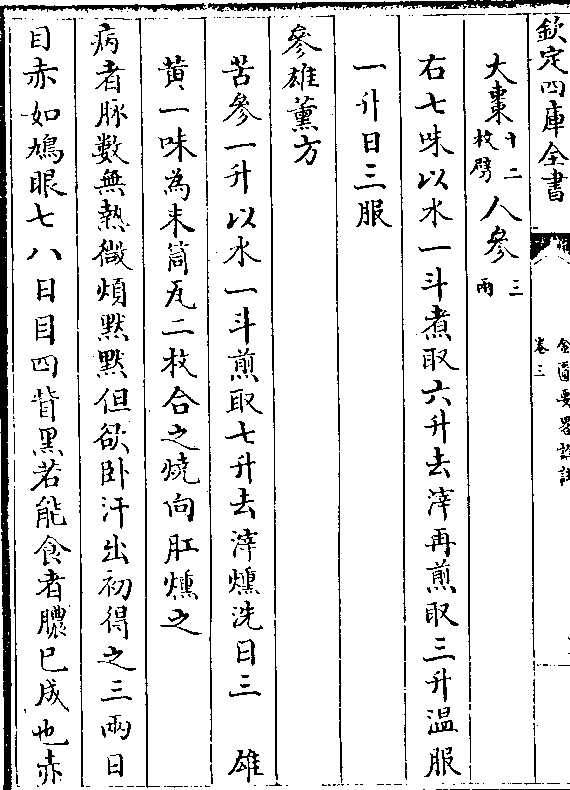 欽定四庫全書
金匱要略論註
卷三
大棗十二枚擘 人參三兩
右七味以水一斗煮取六升去滓再煎取三升温服
一升日三服
參雄薰方
苦參一升以水一斗煎取七升去滓燻洗日三 雄
黄一味為末筒瓦二枚合之燒向肛燻之
病者脉數無熱微煩黙黙但欲卧汗出初得之三兩日
目赤如鳩眼七八日目四眥黑若能食者膿已成也赤